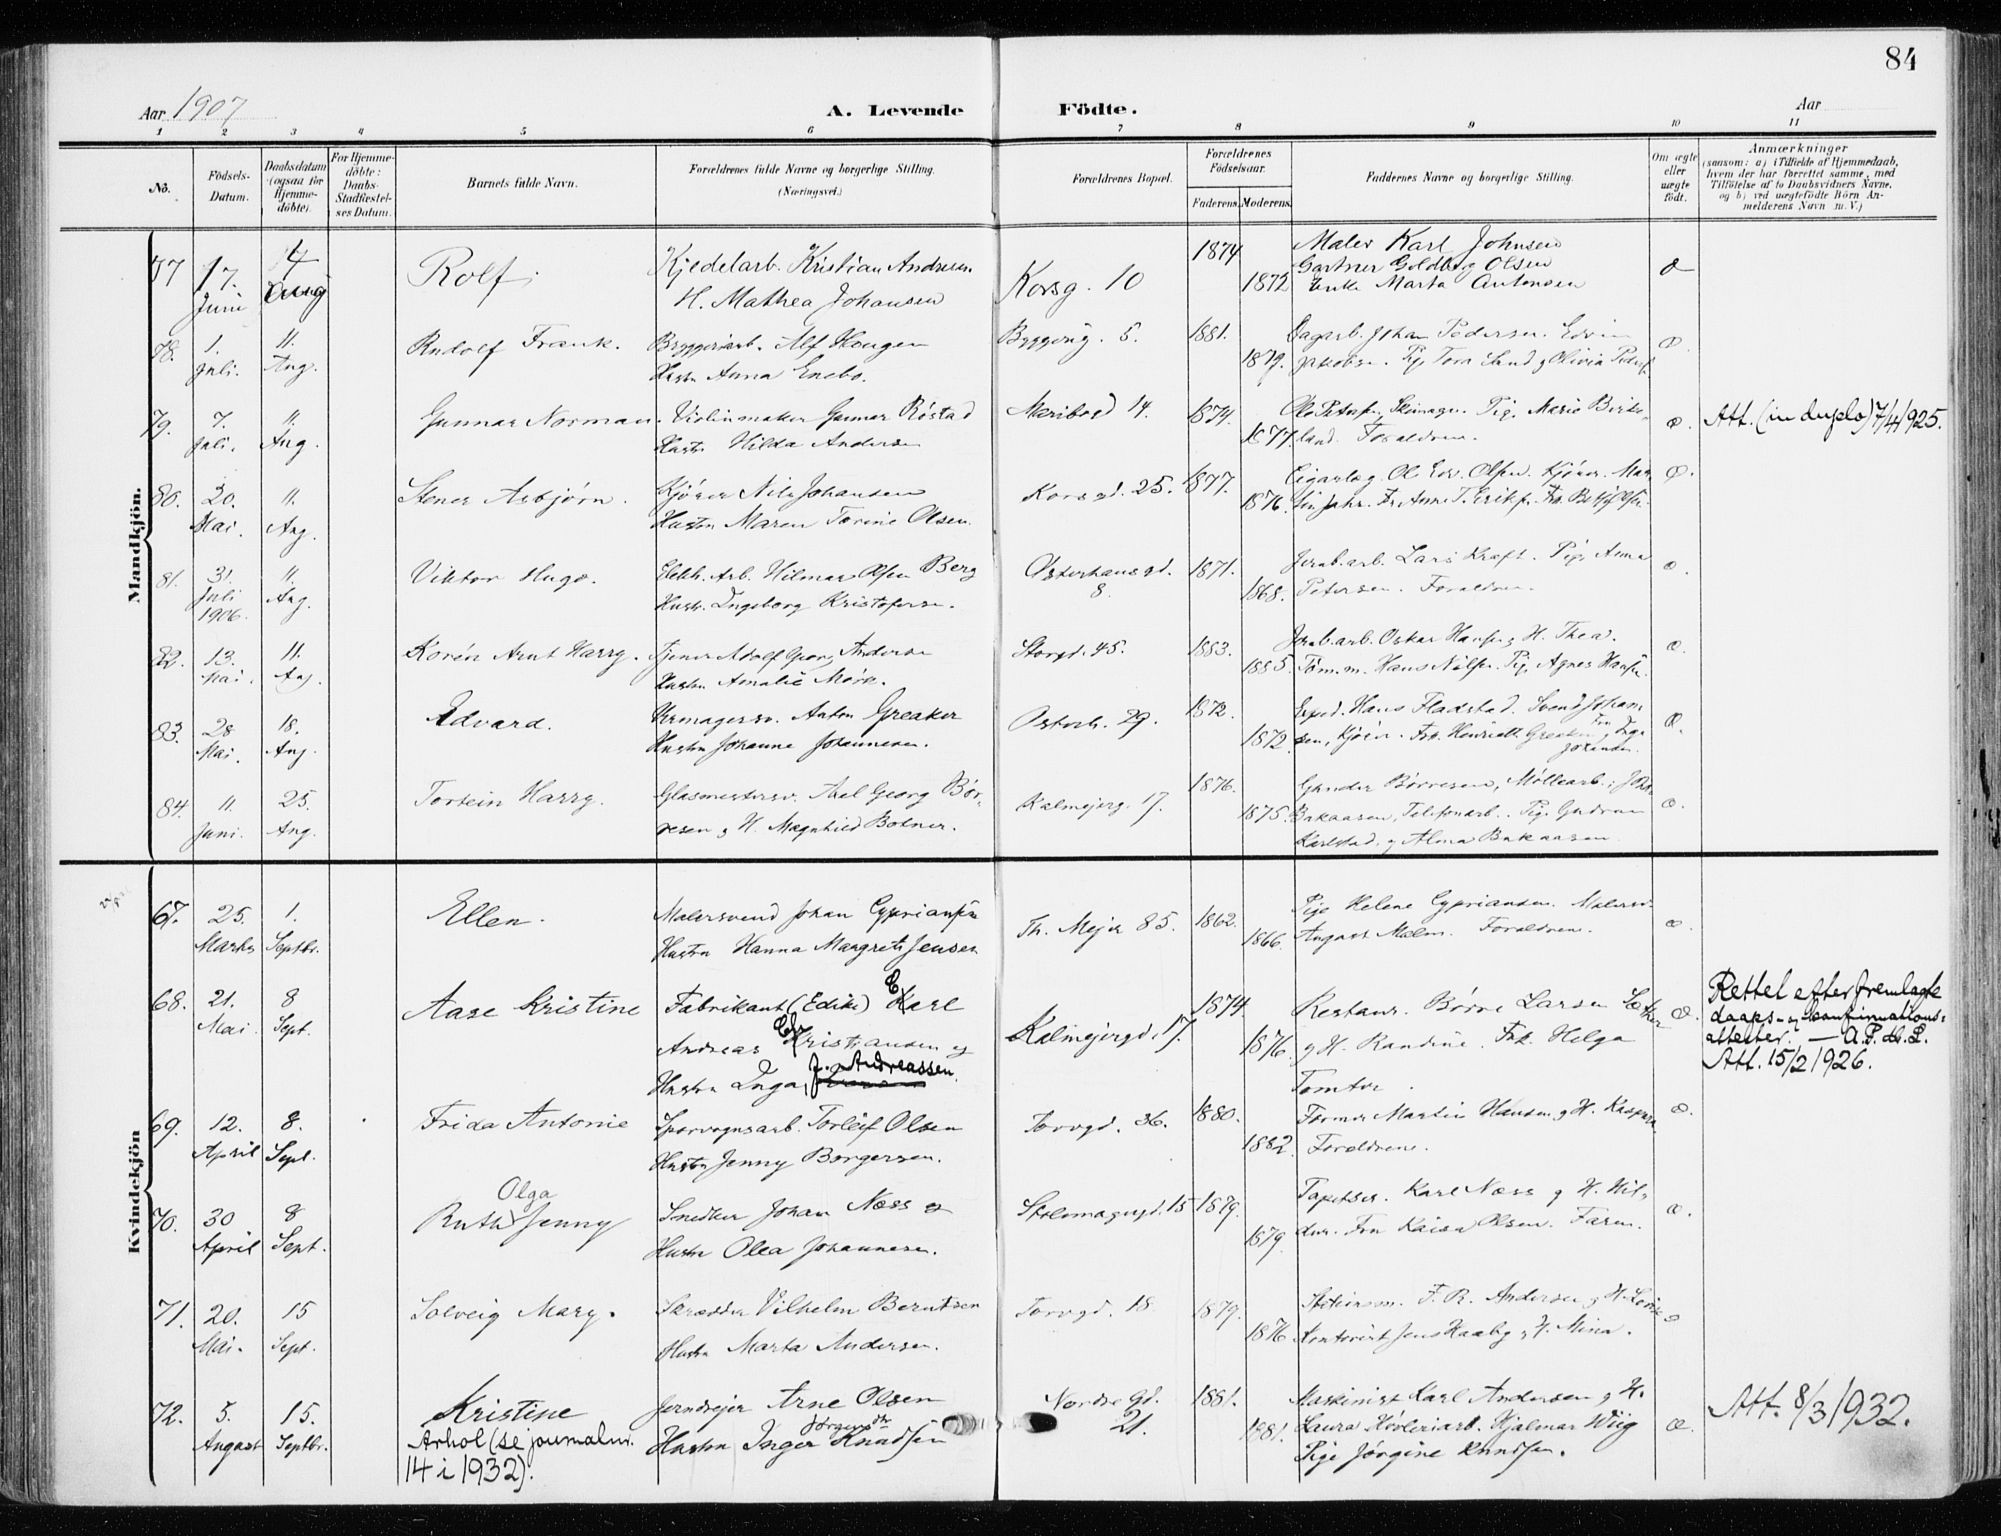 84
Aar 1907
A. Levende Födte.
Aar
1 2 3 4 5 6 7 8 9 10 11
No.
Födsels-Datum.
Daabsdatum (ogsaa for Hjemme-döbte).
For Hjemme-döbte: Daabs-Stadfæstel-ses Datum.
Barnets fulde Navn.
Forældrenes fulde Navne og borgerlige Stilling.
(Næringsvei.)
Forældrenes Bopæl.
Forældrenes Födselsaar.
Faderens. Moderens.
Faddernes Navne og borgerlige Stilling.
Om ægte eller uægte födt.
Anmærkninger
(saasom: a) i Tilfælde af Hjemmedaab,
hvem der har forrettet samme, med
Tilföielse af to Daabsvidners Navne,
og b) ved uægtefödte Börn An-
melderens Navn m. V.)
Mandkjön.
77 17. Juni 4 Aug Rolf. Kjedelarb. Kristian Andresen
H. Mathea Johansen
Korsg. 10 1874 1872
Maler Karl Johnsen
Gartner Goldberg Olsen
Enke Marta Antonsen
78. 1. Juli. 11. Aug. Rudolf Frank. Bryggeriarb. Alf Haugen
Hustr Anna Enebo.
Byggving. 5. 1881. 1879.
Dagarb. Johan Pedersen. Edvin
79. 7. Juli. 11. Aug. Gunnar Norman. Violinmaker Gunnar Røstad
Hustr Hilda Andersen
Maribogd 14. 1874. 1877.
Forældrene. æ.
Att. (in duplo) 7/4 1925.
80. 20. Mai. 11. Aug. Stener Asbjørn. Kjører Nils Johansen
Hustr Maren Torine Olsen.
Korsgd. 25. 1877. 1876.
81. 31. Juli 1906. 11. Aug. Viktor Hugo. Elektr. Arb. Hilmar Olsen Berg
Hustr. Ingeborg Kristofersen.
Osterhausgd. 8. 1871. 1868.
Jernb.arb. Lars Kraft. Pige Anna
Petersen. Forældrene.
82. 13. Mai. 11. Aug. Korén Arnt Harry. Tjener Adolf Georg Andersen
Hustr Amalie Mørk.
Storgd. 45. 1883. 1885.
Jernb.arb. Oskar Hansen og H. Thea.
Tømm.m. Hans Nilsen. Pig. Agnes Hansen
83. 28 Mai. 18. Aug. Edvard. Urmagersv. Anton Greaker
Hustru Johanne Johannesen.
Osterh. 29. 1872. 1872.
Exped. Hans Fladstad. Svend Johan
sen, Kjører. Frk. Henriette Greaker
84. 11. Juni. 25. Aug. Torstein Harry. Glasmestersv. Axel Georg Bør-
resen og H. Magnhild Bolner.
Kalmejerg. 17. 1876. 1875.
Gunder Børresen, Møllearb.; Joh.
Bakaasen, Telefonarb. Pig. Gudrun
Karlstad og Alma Bakaasen.
Kvindekjön
67. 25. Marts 1. Septbr. Ellen. Malersvend Johan Cypriansen
Hustru Hanna Margrete Jensen
Th. Mejer 85. 1862. 1866.
Pige Helene Cypriansen. Malersv.
August Malm. Forældrene. æ.
68. 21. Mai. 8 Sept. Aase Kristine Fabrikant (Edike) Carl
Andreas Christiansen og
Hustru Inga J. Andreassen.
Kalmejergd. 17. 1874 1876.
Restaur. Børre Larsen Sæther
og H. Randine. Frk. Helga
Tomter.
Rettet efter fremlagte
daaps- og konfirmations-
attester. — A. P. L.
Att. 15/2 1926.
69. 12. April 8. Sept. Frida Antonie Sporvognsarb. Torleif Olsen
Hustru Jenny Borgersen.
Torvgd. 36. 1880. 1882
Former Martin Hansen og H. Kaspara.
Forældrene. æ.
70. 30 April 8 Sept. Ruth Olga Jenny Snedker Johan Næss og
Hustru Olea Johannesen.
Stolemagergd. 15 1879. 1879.
Tapetser. Karl Næss og H. Hil-
dur. Fru Kaisa Olsen. Faren. æ.
71. 20. Mai. 15 Sept. Solveig Mary. Skrædder Vilhelm Berntsen
Hustru Marta Andersen.
Torvgd. 18. 1879. 1876.
F. R. Andersen og H. Lovise
Kontorist Jens Haaby og H. Mina.
72. 5. August 15. Septbr. Kristine
Arhol (se journalnr.
14 i 1932).
Jerndrejer Arne Olsen
Hustru Inger Jørgine Knudsen
Nordre gd. 21. 1881. 1881.
Maskinist Karl Andersen og H.
Laura. Hjalmar Wiig
Pige Jørgine Knudsen. æ.
Att. 8/3 1932.